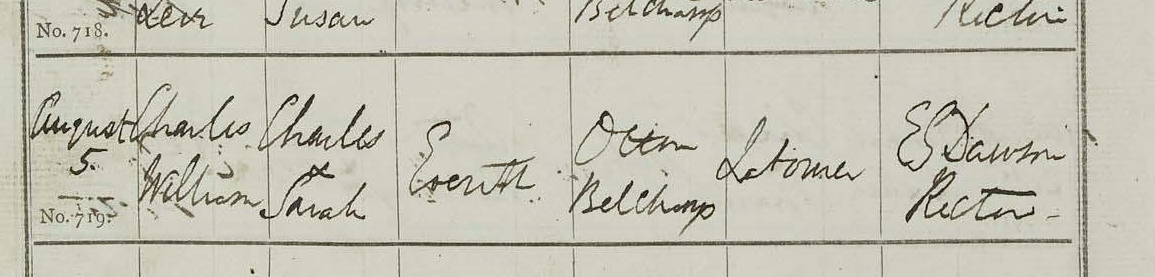 No. 718. Levi Susan Belchamp Rector
August Charles Charles Everitt Otton Laborer ES Dawson
5. William & Sarah Belchamp Rector
No. 719.